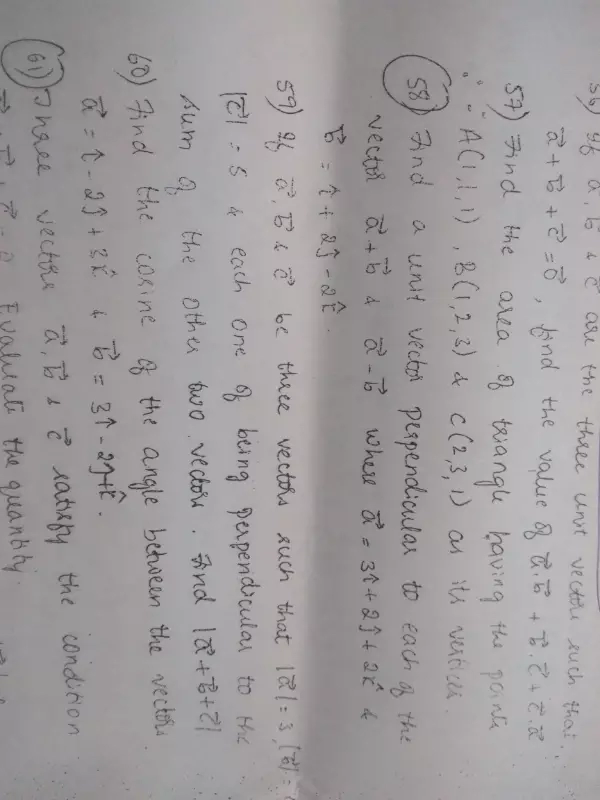 56) If a⃗, b⃗ & c⃗ are the three unit vectors such that
a⃗ + b⃗ + c⃗ = 0⃗, find the value of a⃗.b⃗ + b⃗.c⃗ + c⃗.a⃗
57) Find the area of triangle having the points
A(1,1,1), B(1,2,3) & C(2,3,1) as its vertices.
58) Find a unit vector perpendicular to each of the
vector a⃗+b⃗ & a⃗-b⃗ where a⃗ = 3î+2ĵ+2k̂ &
b⃗ = î+2ĵ-2k̂.
59) If a⃗, b⃗ & c⃗ be three vectors such that |a⃗| = 3, |b⃗| =
|c⃗| = 5 & each one of being perpendicular to the
sum of the other two vectors. Find |a⃗+b⃗+c⃗|
60) Find the cosine of the angle between the vectors
a⃗ = î-2ĵ+3k̂ & b⃗ = 3î-2ĵ+k̂.
61) Three vectors a⃗, b⃗ & c⃗ satisfy the condition
Evaluate the quantity